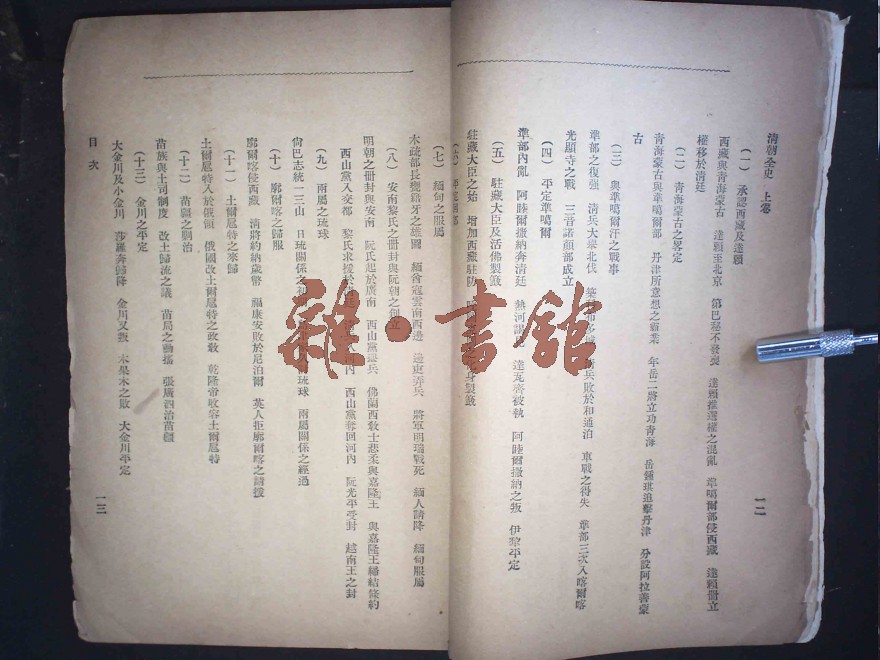 清朝全史 上卷
一二
(一) 承認西藏及達賴
西藏與青海蒙古 達賴至北京 第巴秘不發喪 達賴推選權之混亂 準噶爾部侵西藏 達賴冊立
權移於清廷
(二) 青海蒙古之畧定
青海蒙古與準噶爾部 丹津所意想之霸業 年岳二將立功青海 岳鍾琪追擊丹津 分設阿拉善蒙
古
(三) 與準噶爾汗之戰事
準部之復強 清兵大舉北伐 兵敗於和通泊 車戰之得失 準部三次入喀爾喀
光顯寺之戰 三音諾顏部成立
(四) 平定準噶爾
準部內亂 阿睦爾撒納奔清廷 熱河 達瓦齊被執 阿睦爾撒納之叛 伊犂平定
(五) 駐藏大臣及活佛製籤
駐藏大臣之始 增加西藏駐防 身製籤
(六)
(七) 緬甸之服屬
木疏部長甕籍牙之雄圖 緬會寇雲南西邊 邊吏弄兵 將軍明瑞戰死 緬人請降 緬甸服屬
(八) 安南黎氏之冊封與阮朝之創立
明朝之冊封與安南 阮氏起於廣南 西山黨舉兵 佛蘭西教士悲柔與嘉隆王 與嘉隆王締結條約
西山黨入交都 黎氏求援於 內 西山黨奪回河內 阮光平受封 越南王之封
(九) 兩屬之琉球
尙巴志統一三山 日琉關係之初 琉球 兩屬關係之經過
(十) 廓爾喀之歸服
廓爾喀侵西藏 清將約納歲幣 福康安敗於尼泊爾 英人拒廓爾喀之請援
(十一) 土爾扈特之來歸
土爾扈特入於俄領 俄國改土爾扈特之政敎 乾隆帝收容土爾扈特
(十二) 苗疆之剿治
苗族與土司制度 改土歸流之議 苗局之動搖 張廣泗治苗疆
(十三) 金川之平定
大金川及小金川 莎羅奔歸降 金川又叛 木果木之敗 大金川平定
目次
一三
雜·書館